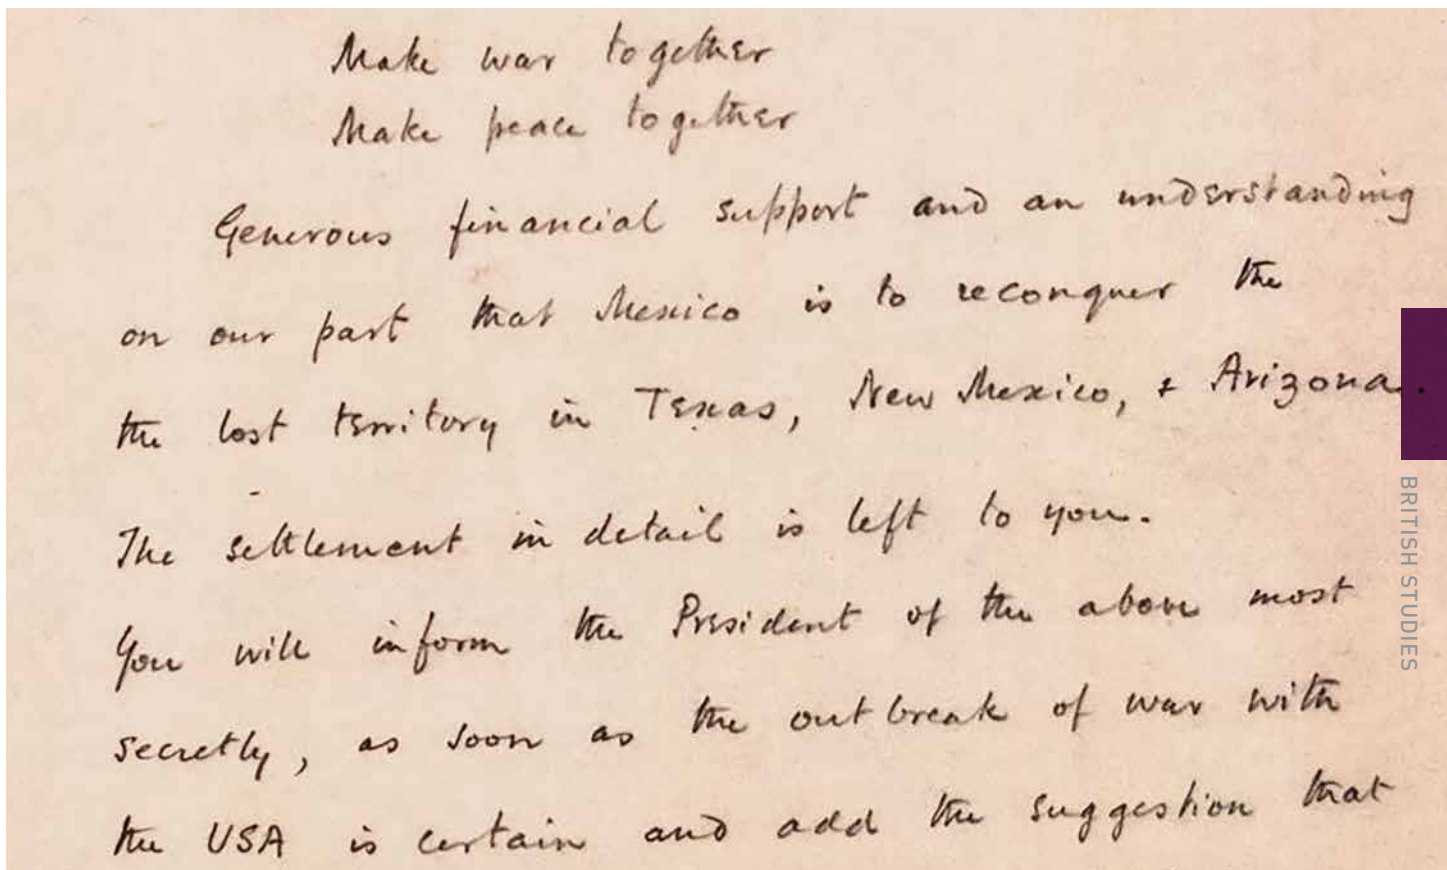 Make war together
Make peace together
Generous financial support and an understanding
on our part that Mexico is to reconquer the
the lost territory in Texas, New Mexico, & Arizona.
The settlement in detail is left to you.
You will inform the President of the above most
secretly, as soon as the outbreak of war with
the USA is certain and add the suggestion that
BRITISH STUDIES